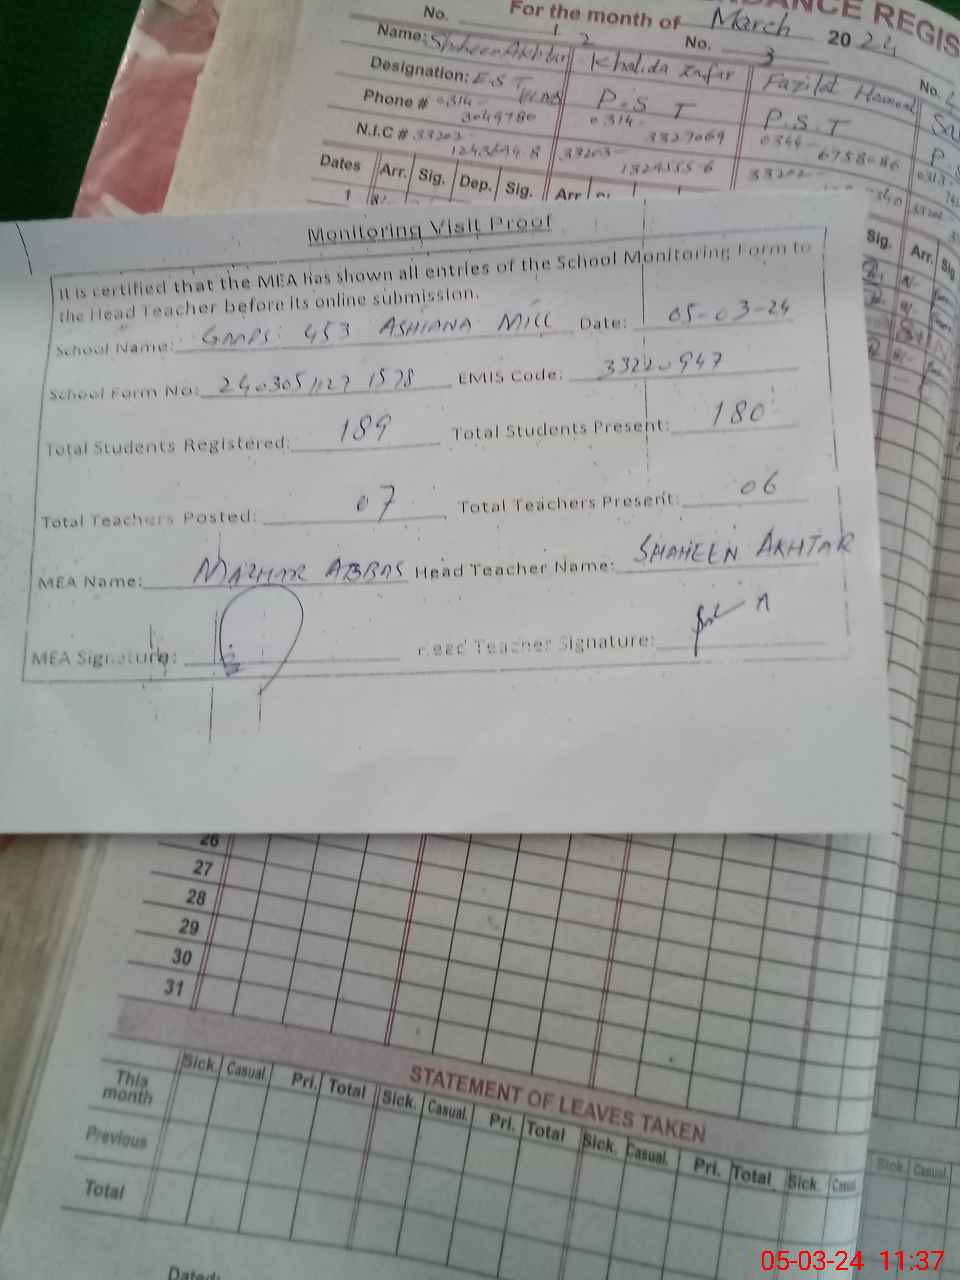 ANCE REGIS
For the month of March 2024
No. 1 2 No. 3 No. 4
Name: Shaheen Akhtar Khalida Zafar Fazilat
Designation: E.S.T P.S.T P.S.T
Phone # 0314- 0314- 0344-
3049780 3327069 6758086
N.I.C # 33202- 33203- 33202-
1243694-8 1324555-6
Dates Arr. Sig. Dep. Sig. Arr
1
Sig. Arr. Sig
Monitoring Visit Proof
It is certified that the MEA has shown all entries of the School Monitoring Form to
the Head Teacher before its online submission.
School Name: GMPS: 453 ASHIANA MILL Date: 05-03-24
School Form No: EMIS Code: 33220947
Total Students Registered: 189 Total Students Present: 180
Total Teachers Posted: 07 Total Teachers Present: 06
MEA Name: MAZHAR ABBAS Head Teacher Name: SHAHEEN AKHTAR
MEA Signature: Head Teacher Signature:
26
27
28
29
30
31
STATEMENT OF LEAVES TAKEN
Sick. Casual. Pri. Total Sick. Casual. Pri. Total Sick. Casual. Pri. Total Sick. Casual. Sick. Casual.
This
month
Previous
Total
Dated:
05-03-24 11:37